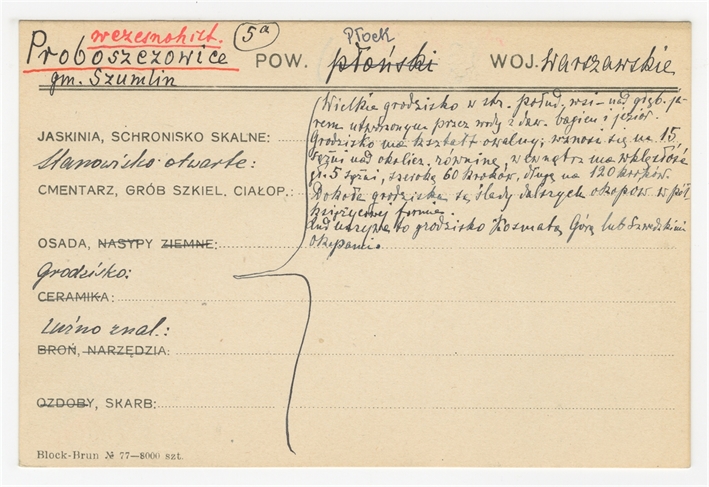 wczesnohist. 5a
Proboszczowice POW. płoński Płock WOJ. Warszawskie
gm. Szumlin
Wielkie grodzisko w str. połud. wsi – nad głęb. ja-
rem utworzonym przez wody z daw. bagien i jezior.
JASKINIA, SCHRONISKO SKALNE: Grodzisko ma kształt owalny; wznosi się na 15
Stanowisko otwarte: sążni nad okolicz. równinę, wewnątrz ma wklęsłość
CMENTARZ, GRÓB SZKIEL. CIAŁOP.: gł. 5 sążni, szeroką 60 kroków, długą na 120 kroków.
Dokoła grodziska są ślady dalszych okopów w pół
księżycowej formie.
OSADA, NASYPY ZIEMNE: Lud nazywa to grodzisko Kosmatą Górą lub Szwedzkimi
Okopami.
Grodzisko:
CERAMIKA:
Luźno znal.:
BROŃ, NARZĘDZIA:
OZDOBY, SKARB:
Block-Brun № 77—8000 szt.